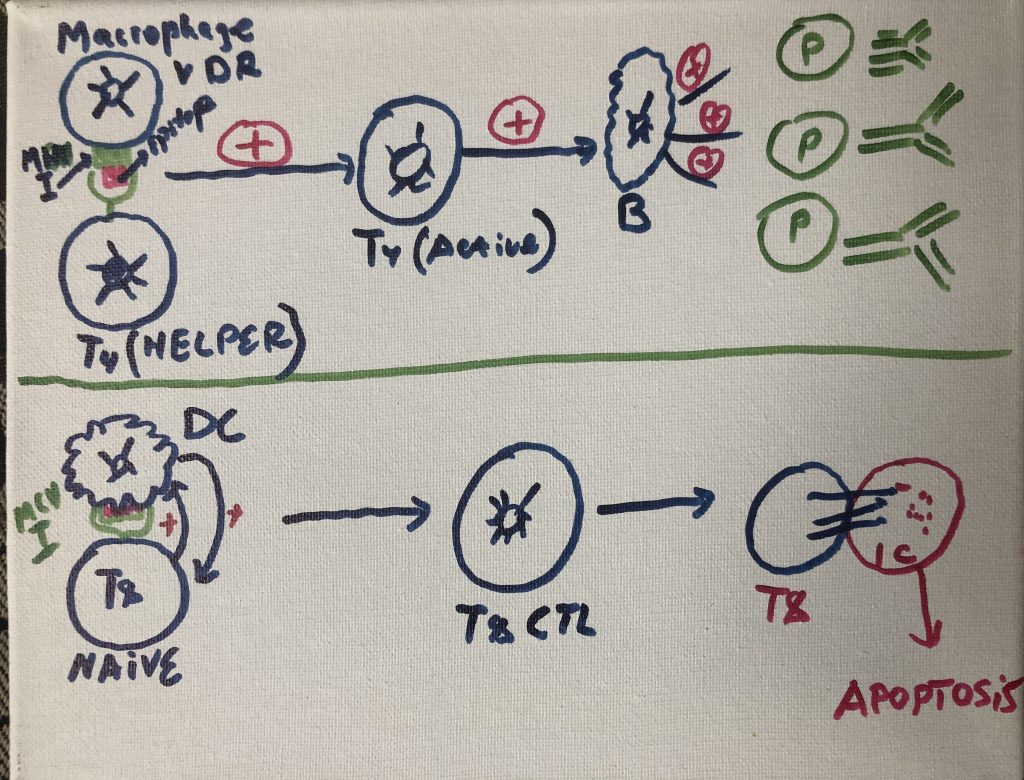 Macrophage
VDR
Epitop
MCH
I
+
+
+
+
+
P
P
P
B
T4 (Active)
T4 (HELPER)
DC
MCH
I
+
+
T8
NAiVE
T8 CTL
T8
IC
APOPTOSiS